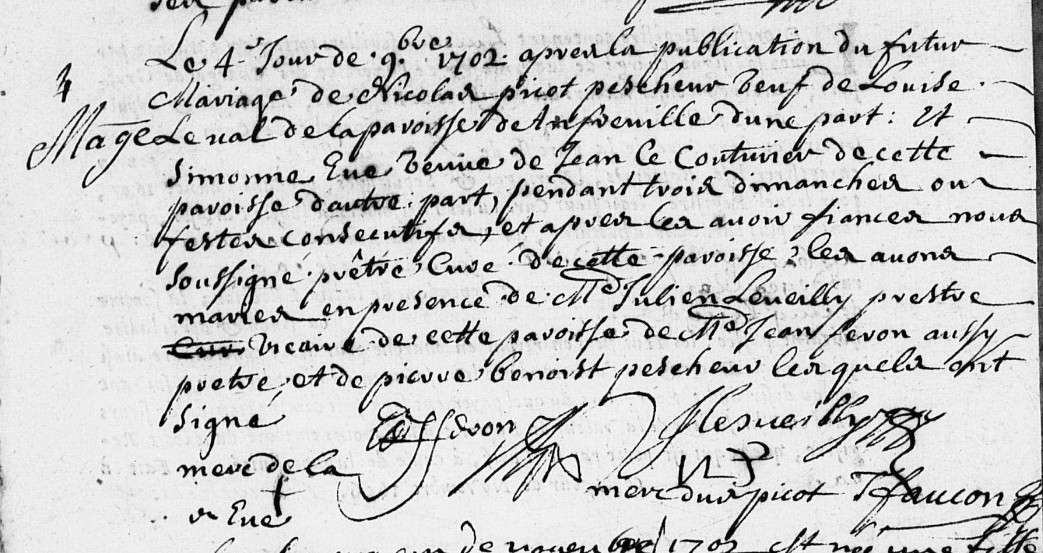 Le 4e Jour de 9.bre 1702 apres la publication du futur
4 Mariage de Nicolas picot pescheur veuf de Louise
Mage Le val de la paroisse de Anfreville dune part: Et
Simonne Eve veuve de Jean Le Couturier de cette
paroisse dautre part, pendant trois dimanches ou
festes consecutifs, et apres les avoir fiancés nous
soussigné prêtre Curé de cette paroisse les avons
mariez en presence de Me Julien Leveilly prestre
vicaire de cette paroisse de Me Jean fevon aussy
pretre et de pierre benoist pescheur lesquels ont
signé
fevon J Lesveilly
merc de la
merc dud picot J faucon
d Eve
de novembre 1702 est née une fille